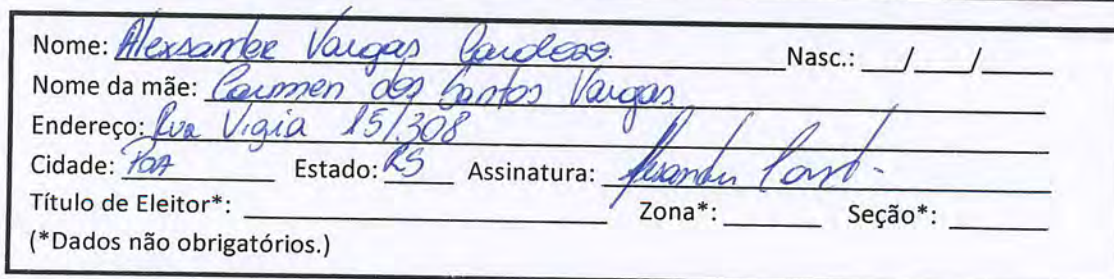 Nome: Alexsander Vargas Cardoso. Nasc.: ___/___/_____
Nome da mãe: Carmen dos Santos Vargas
Endereço: Rua Vigia 151/308
Cidade: POA Estado: RS Assinatura:
Título de Eleitor*: __________ Zona*: _____ Seção*: _____
(*Dados não obrigatórios.)